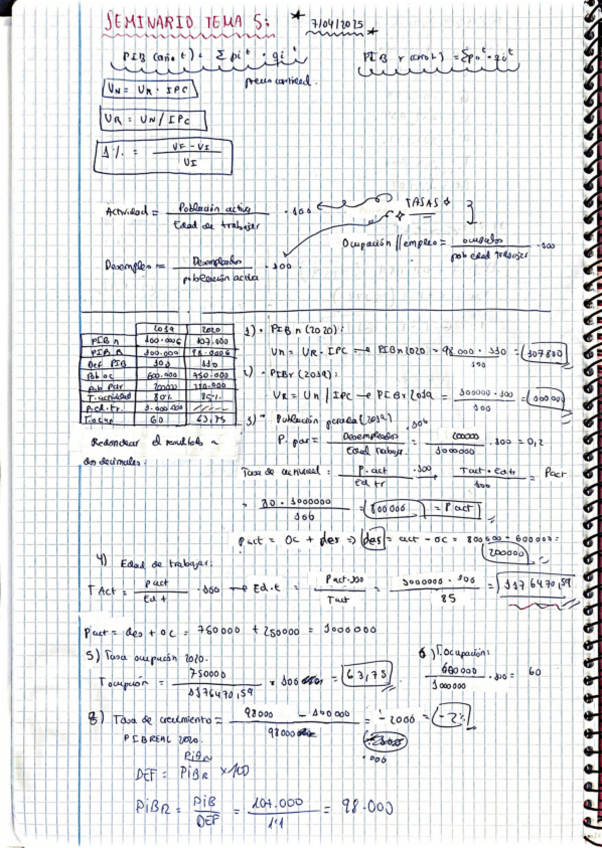 SEMINARIO TEMA 5: * 7/04/2025
PIB (año t) = Σ pi^t · qi^t PIB r (año t) = Σ po^t · qo^t
precio cantidad.
VN = VR · IPC
VR = VN / IPC
Δ% = VF - VI / VI
Actividad = Población activa / Edad de trabajar · 100 TASAS
Ocupación // empleo = ocupados / pob edad trabajar · 100
Desempleo = Desempleados / población activa · 100.
2019 2020
PIB n 100.000 107.000
PIB R 100.000 98.000
Def PIB 100 110
Pob oc 600.000 750.000
Pob par 200000 250.000
T. actividad 80% 85%
P.ed.tr. 1.000.000
T.ocup 60 63,75
Redondear el resultado a
dos decimales.
1) · PIB n (2020):
Vn = VR · IPC → PIBn2020 = 98.000 · 110 / 100 = 107800
2) · PIBr (2019):
VR = Vn / IPC → PIBr2019 = 100000 · 100 / 100 = 100000
3) Población parada (2019)
P. par = Desempleados / Edad trabajar · 100 = 200000 / 1000000 · 100 = 0,2
Tasa de actividad = P.act / Ed tr · 100 → Tact · Edtr / 100 = Pact
= 80 · 1000000 / 100 = 800000 = P act
Pact = Oc + des ⇒ des = act - oc = 800000 - 600000 =
200000
4) Edad de trabajar:
T Act = Pact / Ed t · 100 → Ed.t = Pact·100 / Tact = 1000000 · 100 / 85 = 1176470,59
Pact = des + oc = 750000 + 250000 = 1000000
5) Tasa ocupación 2020. 6) T.Ocupación:
Tocupación = 750000 / 1176470,59 × 100 = 63,75 600000 / 1000000 · 100 = 60
8) Tasa de crecimiento = 98000 - 100000 / 98000 = -2000 = -2%
PIBREAL 2020.
DEF = PiBN / PiBR × 100
PiBR = PiB / DEF = 107.000 / 1'1 = 98.000